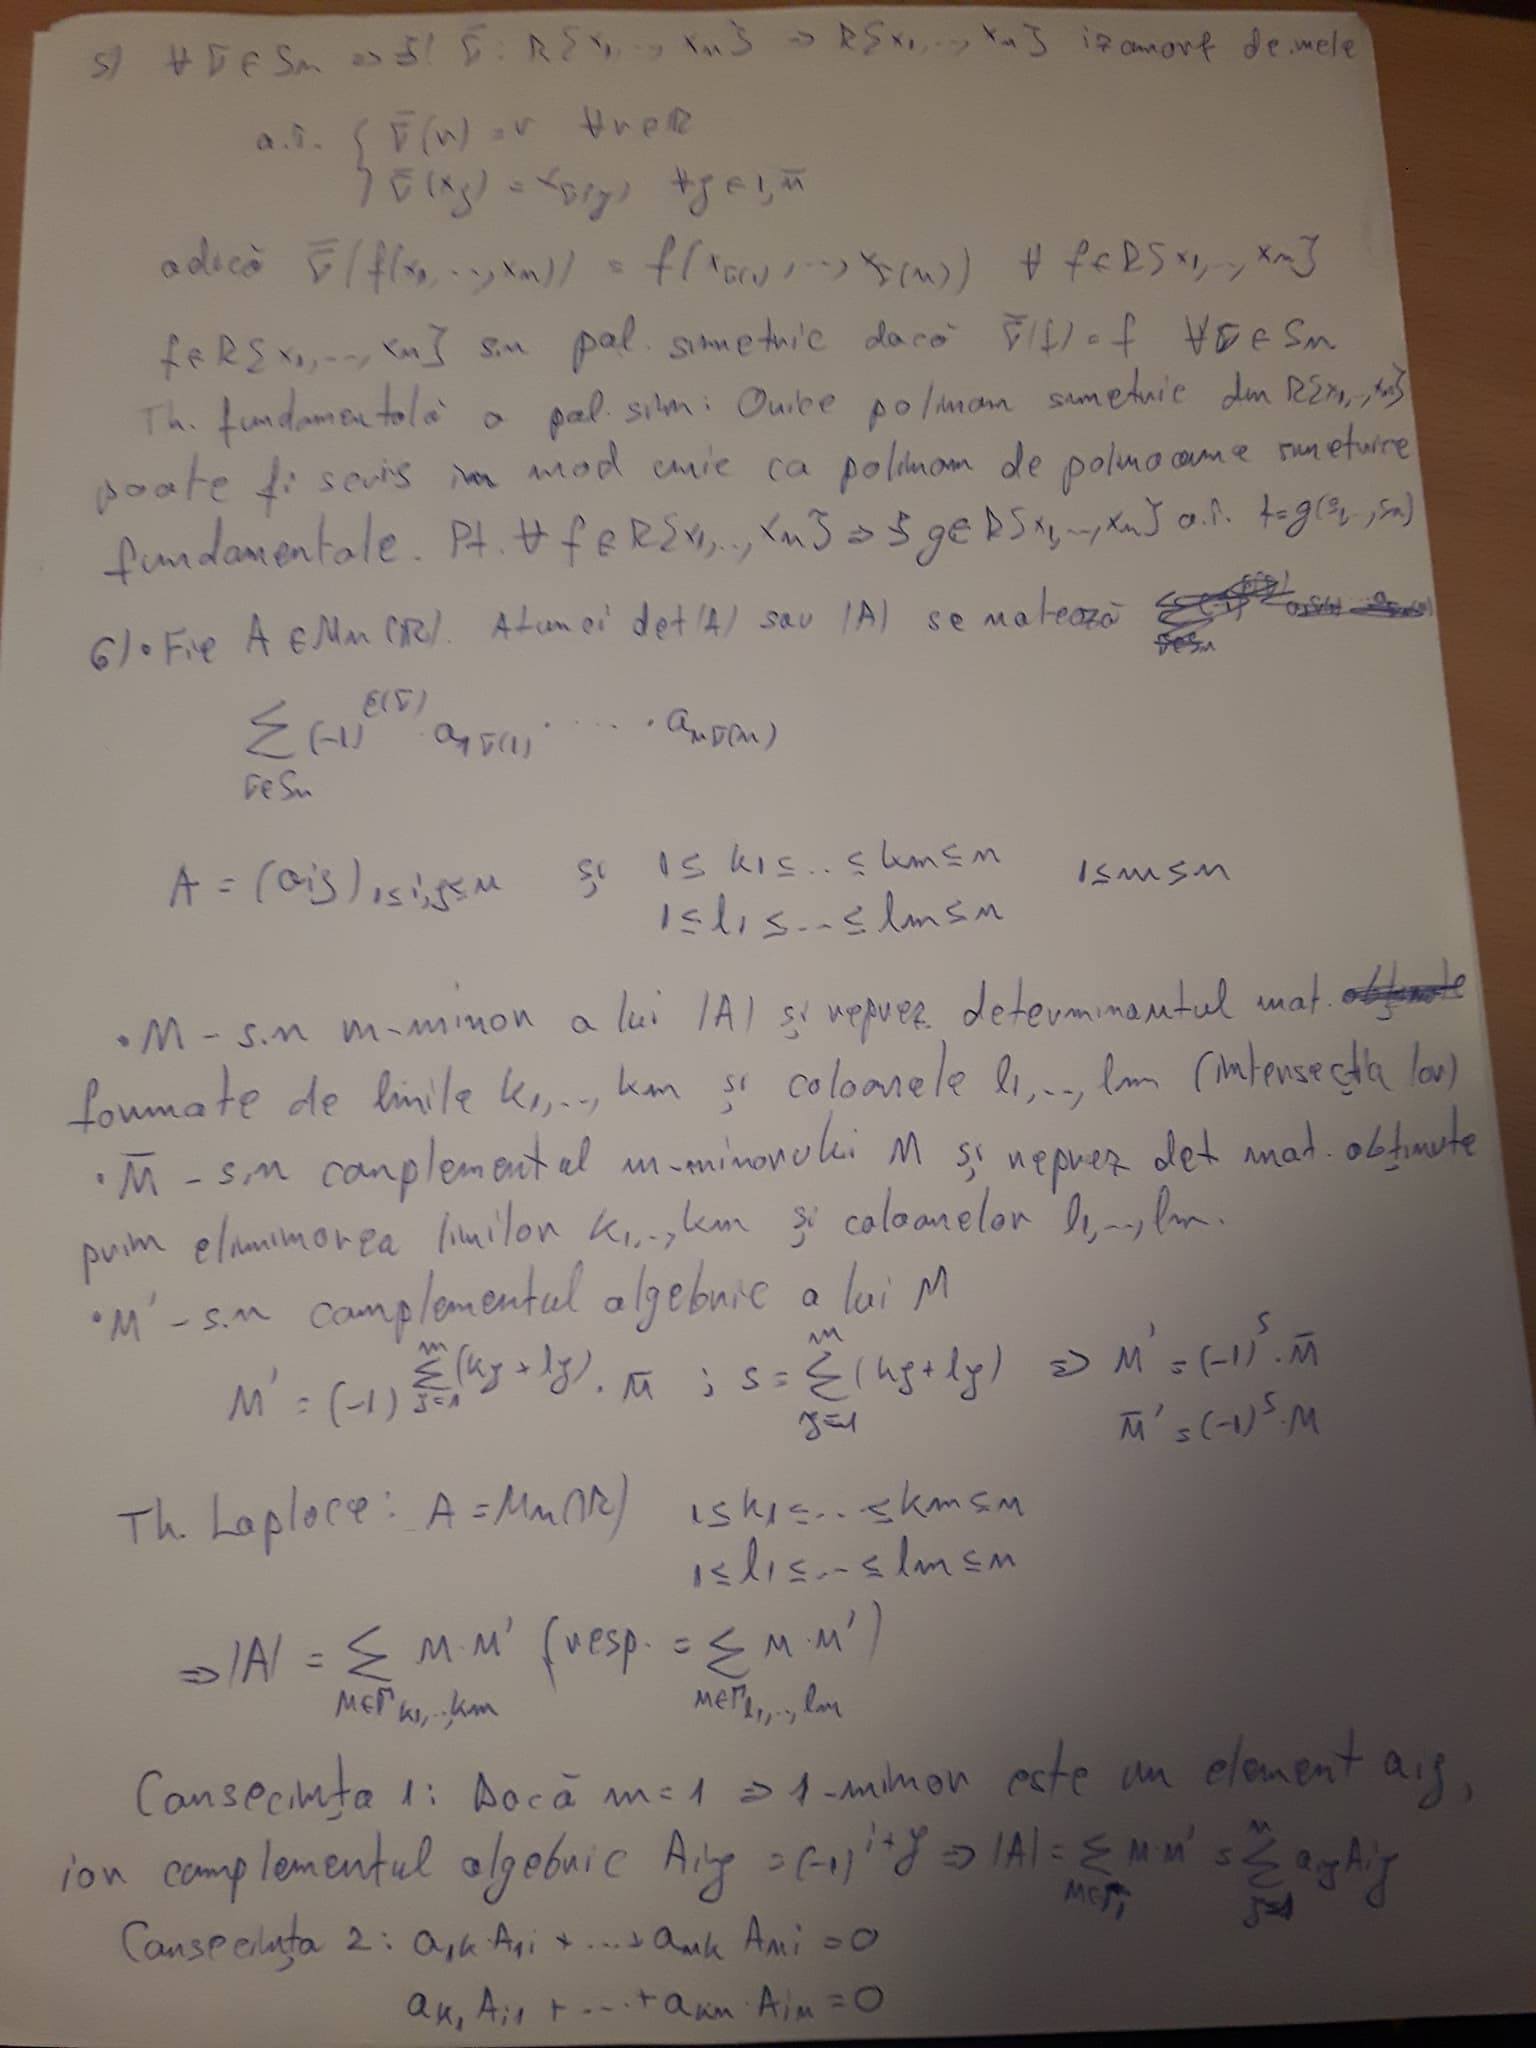 5) ∀ σ ∈ Sn ⇒ ∃! σ̄ : R[x1,..., xn] → R[x1,..., xn] izomorf de inele
a.î. { σ̄(r) = r ∀ r ∈ R
{ σ̄(xj) = xσ(j) ∀ j ∈ 1,n̄
adică σ̄(f(x1,...,xn)) = f(xσ(1),...,xσ(n)) ∀ f ∈ R[x1,..., xn]
f ∈ R[x1,..., xn] s.n pol. simetric dacă σ̄(f) = f ∀ σ ∈ Sn
Th. fundamentală a pol. sim: Orice polinom simetric din R[x1,..,xn]
poate fi scris în mod unic ca polinom de polinoame simetrice
fundamentale. Pt. ∀ f ∈ R[x1,..., xn] ⇒ ∃ g ∈ R[x1,..., xn] a.î. f = g(s1,..,sn)
6) • Fie A ∈ Mn(R). Atunci det(A) sau |A| se notează
Σ (-1)^ε(σ) · a1σ(1) · .... · anσ(n)
σ∈Sn
A = (aij) 1≤i,j≤n și 1 ≤ k1 ≤ .. ≤ km ≤ n 1≤m≤n
1 ≤ l1 ≤ ... ≤ lm ≤ n
• M - s.n m-minor a lui |A| și reprez determinantul mat.
formate de liniile k1,.., km și coloanele l1,.., lm (intersecția lor)
• M̄ - s.n complementul m-minorului M și reprez det mat. obținute
prim eliminarea liniilor k1,.., km și coloanelor l1,..., lm.
• M' - s.n complementul algebric a lui M
M' = (-1)^Σ_{j=1}^{m}(kj + lj) · M̄ ; s = Σ_{j=1}^{m}(kj + lj) ⇒ M' = (-1)^s · M̄
M̄' = (-1)^s · M
Th. Laplace: A = Mn(R) 1 ≤ k1 ≤ ... ≤ km ≤ n
1 ≤ l1 ≤ ... ≤ lm ≤ n
⇒ |A| = Σ M·M' (resp. = Σ M·M')
M∈Γk1,..,km M∈Γl1,..,lm
Consecința 1: Dacă m = 1 ⇒ 1-minor este un element aij,
iar complementul algebric Aij = (-1)^i+j ⇒ |A| = Σ_{M∈Γi} M·M' = Σ_{j=1}^{n} aij Aij
Consecința 2: a1k·A1i + ... + ank Ani = 0
ak1 Ai1 + ... + akn·Ain = 0